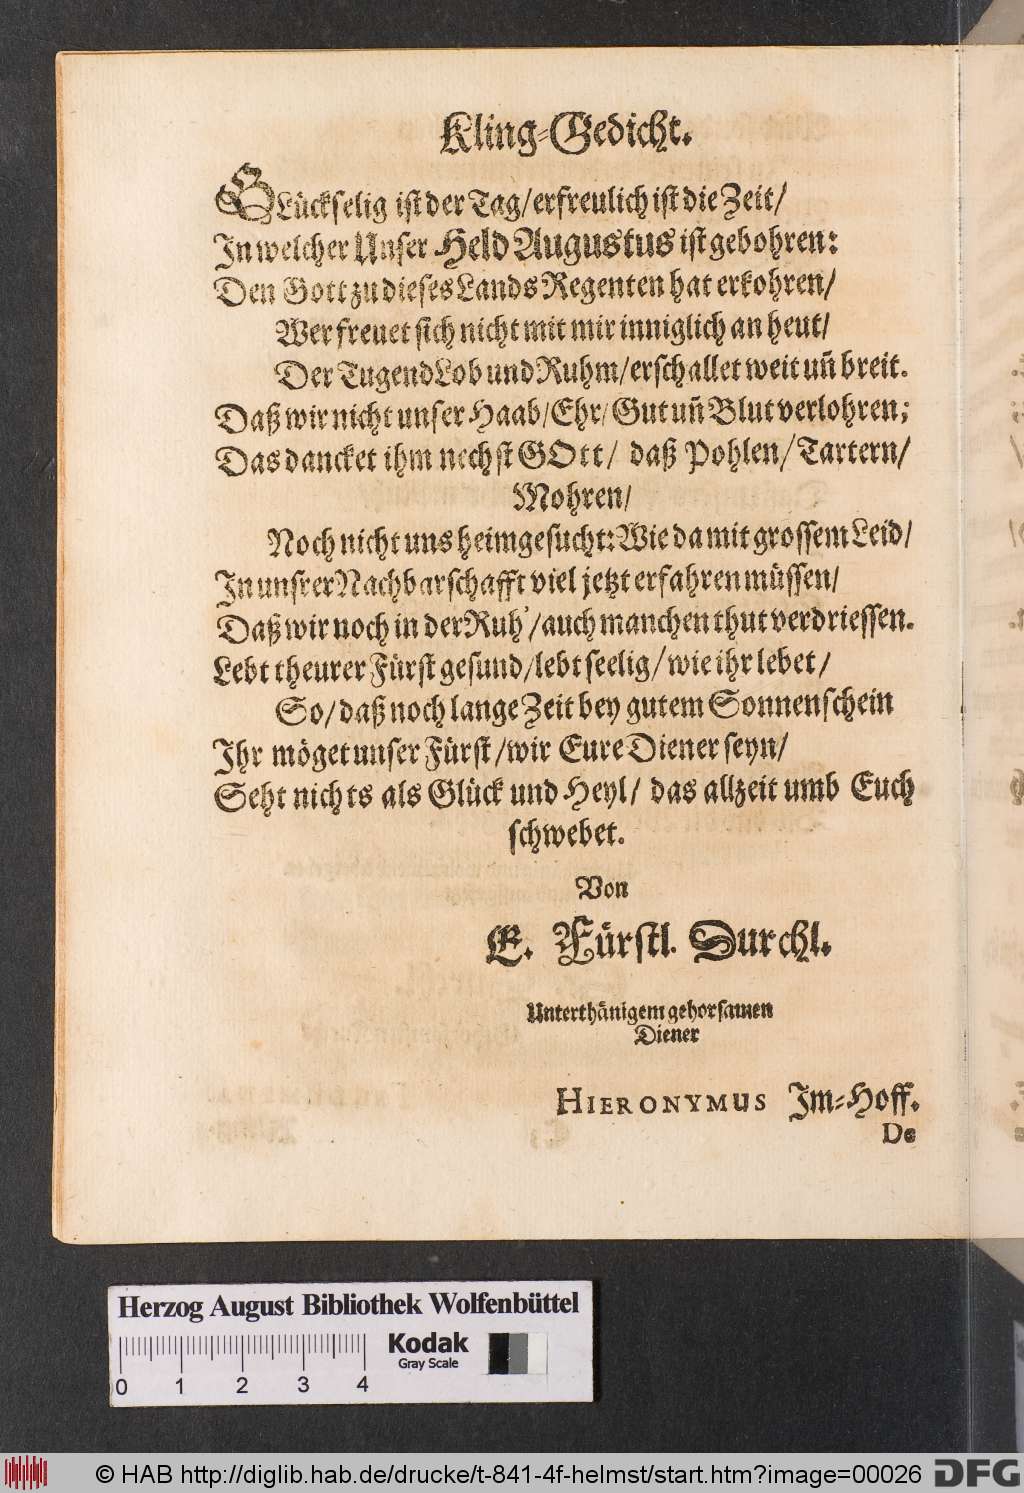 Kling-Gedicht.
GLückselig ist der Tag/ erfreulich ist die Zeit/
In welcher Unser Held Augustus ist gebohren:
Den Gott zu dieses Lands Regenten hat erkohren/
Wer freuet sich nicht mit mir inniglich an heut/
Der Tugend Lob und Ruhm/ erschallet weit uñ breit.
Daß wir nicht unser Haab/ Ehr/ Gut uñ Blut verlohren;
Das dancket ihm nechst GOtt/ daß Pohlen/ Tartern/
Mohren/
Noch nicht uns heimgesucht: Wie da mit grossem Leid/
In unsrer Nachbarschafft viel jetzt erfahren müssen/
Daß wir noch in der Ruh'/ auch manchen thut verdriessen.
Lebt theurer Fürst gesund/ lebt seelig/ wie ihr lebet/
So/ daß noch lange Zeit bey gutem Sonnenschein
Ihr möget unser Fürst/ wir Eure Diener seyn/
Seht nichts als Glück und Heyl/ das allzeit umb Euch
schwebet.
Von
E. Fürstl. Durchl.
Unterthänigem gehorsamen
Diener
HIERONYMUS Im-Hoff.
De
Herzog August Bibliothek Wolfenbüttel
Kodak
Gray Scale
0 1 2 3 4
© HAB http://diglib.hab.de/drucke/t-841-4f-helmst/start.htm?image=00026
DFG